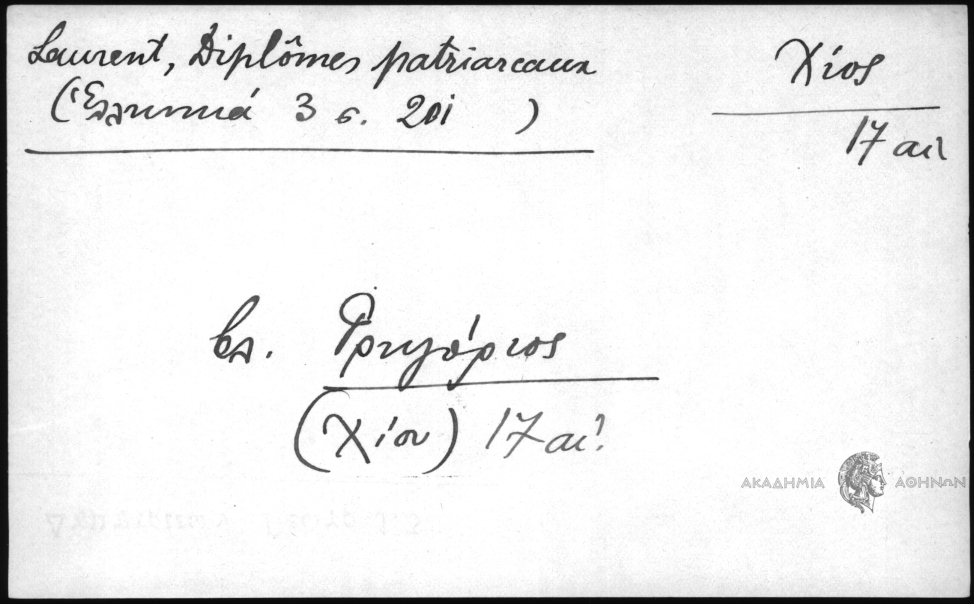 Laurent, Diplômes patriarcaux
(Ἑλληνικά 3 σ. 201 )
Χίος
17 αἰ
βλ. Γρηγόριος
(Χίου) 17 αἰ.
ΑΚΑΔΗΜΙΑ ΑΘΗΝΩΝ